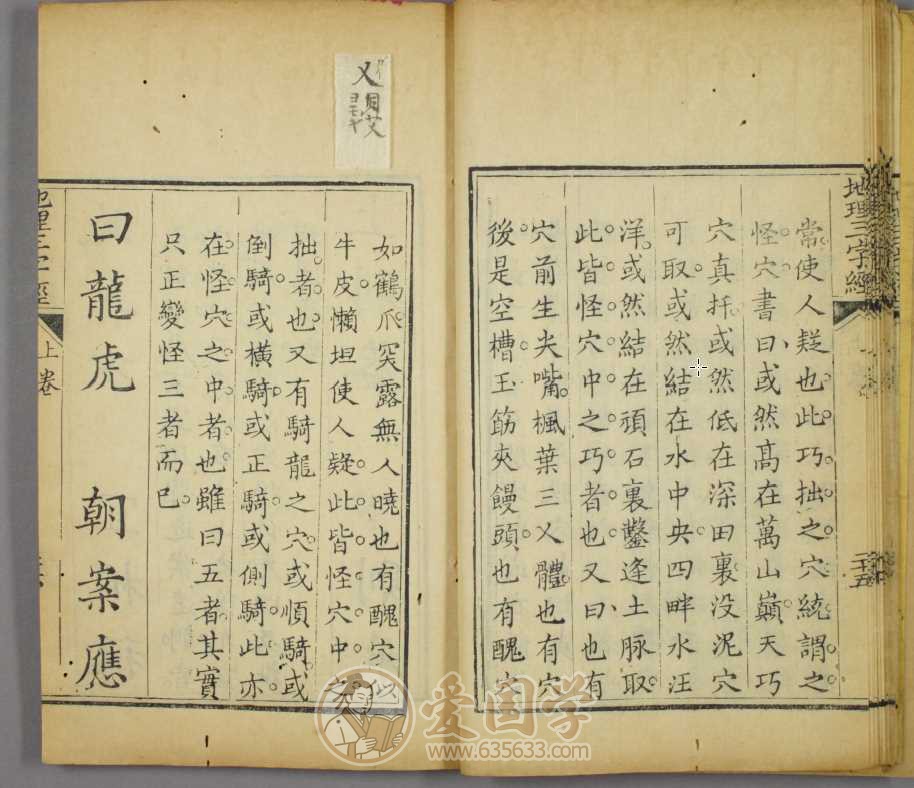 地理三字經
二十五
常使人疑也此巧拙之穴統謂之
怪穴書曰或然高在萬山巔天巧
穴真扦或然低在深田裏没泥穴
可取或然結在水中央四畔水汪
洋或然結在頑石裏鑿逢土脉取
此皆怪穴中之巧者也又曰也有
穴前生尖嘴楓葉三乂體也有穴
後是空槽玉筋夾饅頭也有醜穴
如鶴爪突露無人曉也有醜穴似
牛皮懶坦使人疑此皆怪穴中之
拙者也又有騎龍之穴或順騎或
倒騎或橫騎或正騎或側騎此亦
在怪穴之中者也雖曰五者其實
只正變怪三者而已
曰龍虎 朝案應
地理三字經
上卷
爱国学
www.635633.com